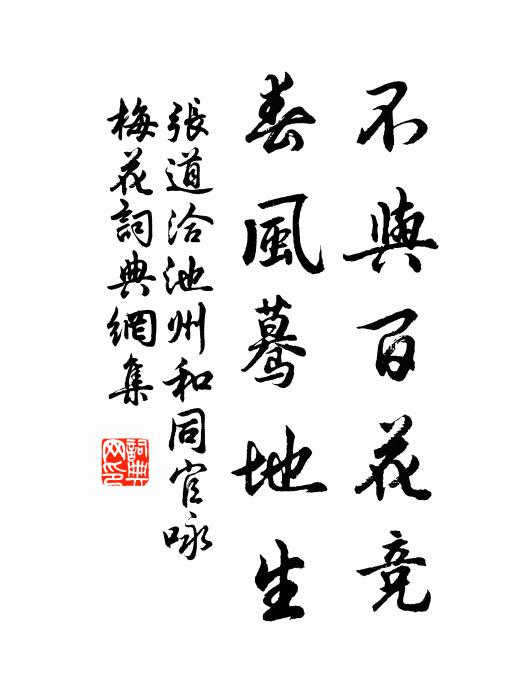 不與百花竞
春風驀地生
張道洽池州和同官咏
梅花詞典網集
詞典网印